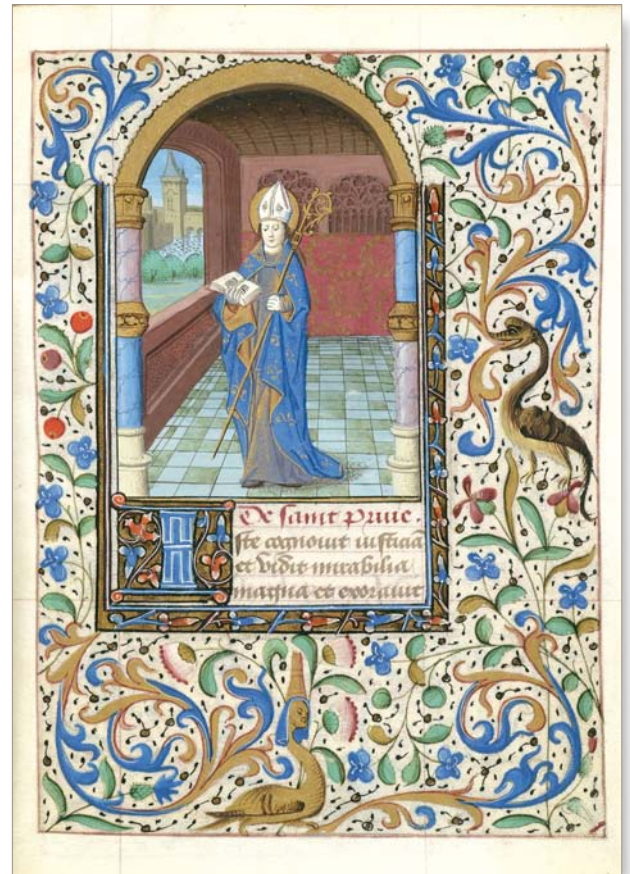 De saint Priue.
Iste cognouit iusticiã
et vidit mirabilia
magna et exorauit